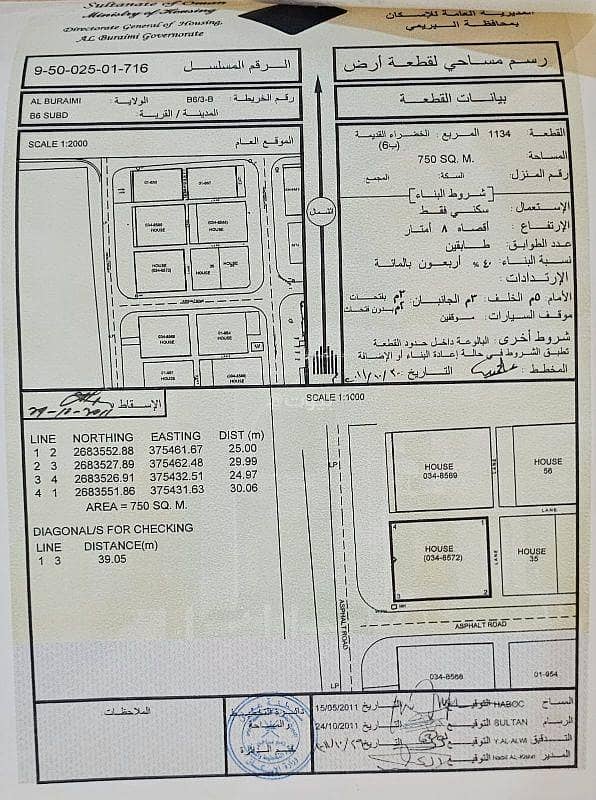 Sultanate of Oman
Ministry of Housing
Directorate General of Housing,
AL Buraimi Governorate
المديرية العامة للإسكان
بمحافظة البريمي
رسم مساحي لقطعة أرض
الرقم المسلسل 9-50-025-01-716
بيانات القطعة
رقم الخريطة B6/3-B الولاية: AL BURAIMI
المدينة / القرية: B6 SUBD
الموقع العام SCALE 1:2000
القطعة: 1134 المربع: الخضراء القديمة
(ب6)
المساحة: 750 SQ. M.
رقم المنزل: السكة: المجمع:
[شروط البناء]
الإستعمال: سكني فقط
الإرتفاع: أقصاه ٨ أمتار
عدد الطوابق: طابقين
نسبة البناء: ٤٠% أربعون بالمائة
الإرتدادات:
الأمام ٥م الخلف: ٣م الجانبان: ٣م بفتحات
بدون فتحات
موقف السيارات: موقفين
شروط أخرى: البالوعة داخل حدود القطعة
تطبق الشروط في حالة إعادة البناء أو الإضافة
المخطط: التاريخ
الشمال
01-953
034-8586
HOUSE
HOUSE
(034-8572)
HOUSE
35
HOUSE
034-8566
HOUSE
01-954
HOUSE
W
HOUSE
HOUSE
الإسقاط
LINE NORTHING EASTING DIST (m)
1 2 2683552.88 375461.67 25.00
2 3 2683527.89 375462.48 29.99
3 4 2683526.91 375432.51 24.97
4 1 2683551.86 375431.63 30.06
AREA = 750 SQ. M.
DIAGONAL/S FOR CHECKING
LINE DISTANCE(m)
1 3 39.05
SCALE 1:1000
LP
HOUSE
034-8569
LANE
HOUSE
56
LANE
4 1
HOUSE
(034-8572)
3 2
LANE
HOUSE
35
ASPHALT ROAD
ASPHALT ROAD
LP
034-8566
01-954
الملاحظات
دائرة التخطيط
والمساحة
ختم الدائرة
المساح HABOC التوقيع التاريخ 15/05/2011
الرسام SULTAN التوقيع التاريخ 24/10/2011
التدقيق Y.AL-ALWI التوقيع التاريخ
المدير التوقيع التاريخ